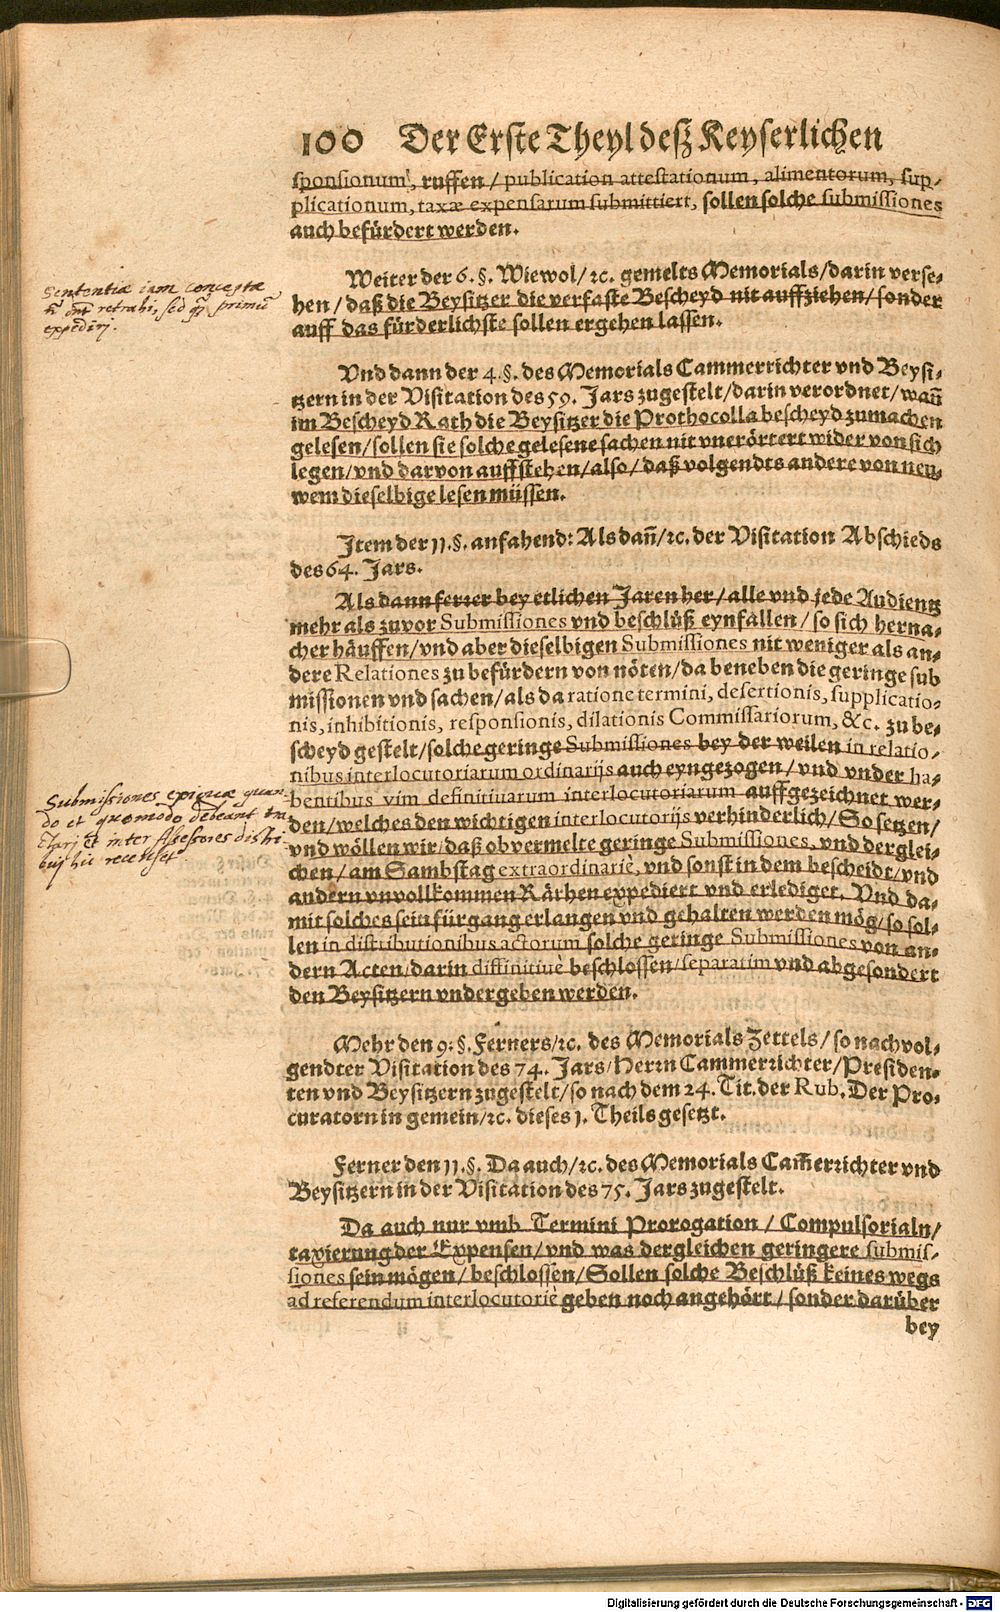 100 Der Erste Theyl deß Keyserlichen
sponsionum, ruffen / publication attestationum, alimentorum, sup-
plicationum, taxæ expensarum submittiert, sollen solche submissiones
auch befürdert werden.
Weiter der 6. §. Wiewol / ꝛc. gemelts Memorials / darin verse-
hen / daß die Beysitzer die verfaste Bescheyd nit auffziehen / sonder
auff das fürderlichste sollen ergehen lassen.
Sententiæ iam conceptæ
retrahi, sed primũ
Vnd dann der 4. §. des Memorials Cammerrichter vnd Beysi-
tzern in der Visitation des 59. Jars zugestelt / darin verordnet / wañ
im Bescheyd Rath die Beysitzer die Prothocolla bescheyd zumachen
gelesen / sollen sie solche gelesene sachen nit vnerörtert wider von sich
legen / vnd darvon auffstehen / also / daß volgendts andere von neu-
wem dieselbige lesen müssen.
Item der 11. §. anfahend: Als dañ / ꝛc. der Visitation Abschieds
des 64. Jars.
Als dann ferrer bey etlichen Jaren her / alle vnd jede Audientz
mehr als zuvor Submissiones vnd beschlüß eynfallen / so sich herna-
cher häuffen / vnd aber dieselbigen Submissiones nit weniger als an-
dere Relationes zu befürdern von nöten / da beneben die geringe sub
missionen vnd sachen / als da ratione termini, desertionis, supplicatio-
nis, inhibitionis, responsionis, dilationis Commissariorum, &c. zu be-
scheyd gestelt / solche geringe Submissiones bey der weilen in relatio-
nibus interlocutoriarum ordinarijs auch eyngezogen / vnd vnder ha-
bentibus vim definitiuarum interlocutoriarum auffgezeichnet wer-
den / welches den wichtigen interlocutorijs verhinderlich / So setzen /
vnd wöllen wir / daß ob vermelte geringe Submissiones, vnd derglei-
chen / am Sambstag extraordinariè, vnd sonst in dem bescheidt / vnd
andern vnvollkommen Räthen expediert vnd erlediget. Vnd da-
mit solches sein fürgang erlangen vnd gehalten werden mög / so sol-
len in distributionibus actorum solche geringe Submissiones von an-
dern Acten / darin diffinitiuè beschlossen / separatim vnd abgesondert
den Beysitzern vndergeben werden.
Submissiones exiguæ quan-
do et quomodo debeant
et inter Assessores distri-
hic recenset
Mehr den 9. §. Ferners / ꝛc. des Memorials Zettels / so nachvol-
gendter Visitation des 74. Jars / Herrn Cammerrichter / Presiden-
ten vnd Beysitzern zugestelt / so nach dem 24. Tit. der Rub. Der Pro-
curatorn in gemein / ꝛc. dieses 1. Theils gesetzt.
Ferner den 11. §. Da auch / ꝛc. des Memorials Cam̃errichter vnd
Beysitzern in der Visitation des 75. Jars zugestelt.
Da auch nur vmb Termini Prorogation / Compulsorialn /
taxierung der Expensen / vnd was dergleichen geringere submis-
siones sein mögen / beschlossen / Sollen solche Beschlüß keines wegs
ad referendum interlocutoriè geben noch angehört / sonder darüber
bey
Digitalisierung gefördert durch die Deutsche Forschungsgemeinschaft - DFG